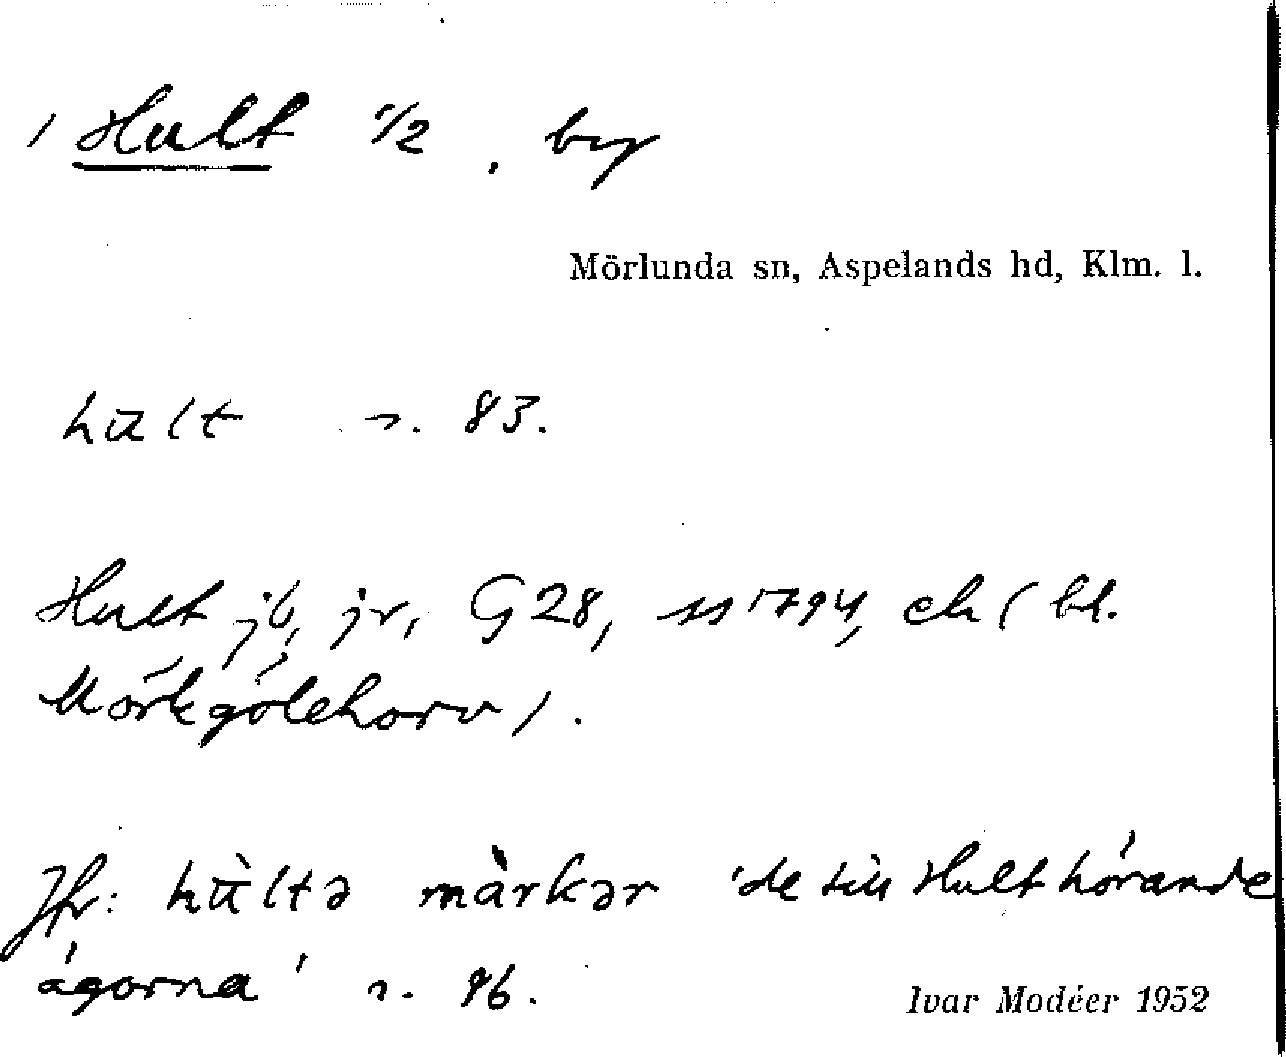 / Hult 1/2 , by
Mörlunda sn, Aspelands hd, Klm. l.
hult s. 83.
Hult jb, jr, G28, ss 1794, ek ( bl.
Mörkgölehorv ) .
Jfr: hùltə màrkər 'de till Hult hörande
ägorna' s. 96.
Ivar Modéer 1952